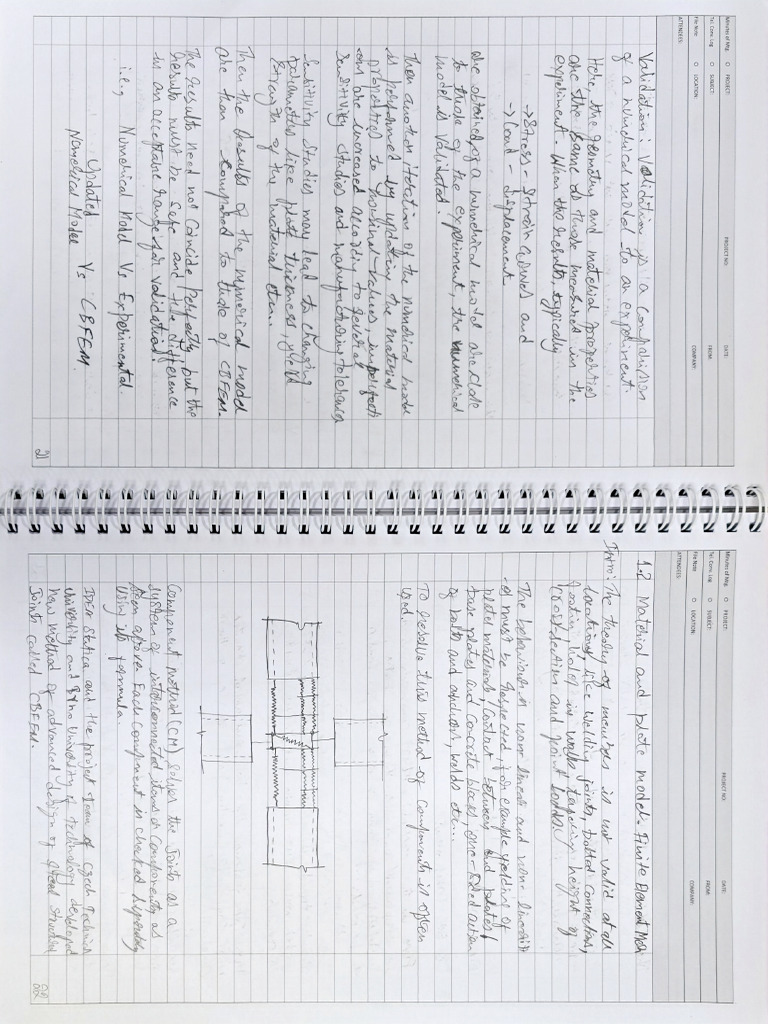 Minutes of Mtg. O PROJECT: PROJECT NO: DATE:
Tel. Conv. Log O SUBJECT: FROM:
File Note O LOCATION: COMPANY:
ATTENDEES:
Validation: Validation is a Comparision
of a numerical model to an experiment.
Here, the geometry and material properties
are the same as those measured in the
experiment. When the results, typically
→ Stress - Strain curves and
→ Load - displacement
are obtained, of a numerical model are close
to those of the experiment, the numerical
model is validated.
Then another iteration of the numerical model
is performed by updating the material
properties to nominal values, imperfecti
ons are increased according to several
Sensitivity studies and manufacturing tolerances
Sensitivity Studies may lead to changing
parameters like plate thickness, yield
Strength of the material etc..
Then the Results of the numerical model
are then compared to those of CBFEM.
The results need not Coincide perfectly but the
Results must be Safe and the difference
in an acceptable range for validation!
i.e., Numerical Model Vs Experimental.
Updated
Numerical Model Vs CBFEM.
21
Minutes of Mtg. O PROJECT: PROJECT NO: DATE:
Tel. Conv. Log O SUBJECT: FROM:
File Note O LOCATION: COMPANY:
ATTENDEES:
1.2 Material and plate model. Finite Element Mesh
Intro: The theory of members is not valid at all
locations, like welding joints, bolted connections,
footing, holes in walls, tapering height of
Crosssection and point loads.
The behaviour is none linear and none linearit
-es must be respected, for example yielding of
plate materials, contact between end plates/
base plates and concrete blocks, one-sided action
of bolts and anchors, welds etc...
To resolve this method of Components is often
used.
Component method (CM) Solves the Joints as a
System of interconnected items or components as
seen above. Each component is checked seperately
using its formula.
IDEA Statica and the project team of Czech Technical
University and Brno University of technology developed
new method of advanced design of Steel Structural
Joints called CBFEM.
22